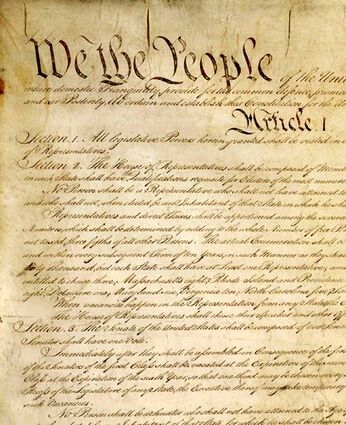 We the People of the Unit
insure domestic Tranquility, provide for the common defence, promo
and our Posterity, do ordain and establish this Constitution for the Un
Article. I.
Section. 1. All legislative Powers herein granted shall be vested in a
of Representatives.
Section. 2. The House of Representatives shall be composed of Mem
in each State shall have the Qualifications requisite for Electors of the most numero
No Person shall be a Representative who shall not have attained to
and who shall not, when elected, be an Inhabitant of that State in which he sha
Representatives and direct Taxes shall be apportioned among the seve
Numbers, which shall be determined by adding to the whole Number of free Per
not taxed, three fifths of all other Persons. The actual Enumeration shall
and within every subsequent Term of ten Years, in such Manner as they sha
thirty Thousand, but each State shall have at Least one Representative; and
entitled to chuse three, Massachusetts eight, Rhode Island and Providence
eight, Delaware one, Maryland six, Virginia ten, North Carolina five, So
When vacancies happen in the Representation from any State, the
The House of Representatives shall chuse their Speaker and other Off
Section. 3. The Senate of the United States shall be composed of two
Senator shall have one Vote.
Immediately after they shall be assembled in Consequence of the
of the Senators of the first Class shall be vacated at the Expiration of the
Class at the Expiration of the sixth Year, so that one third may be chosen every
Recess of the Legislature of any State, the Executive thereof may make temporary
such Vacancies.
No Person shall be a Senator who shall not have attained to the Age